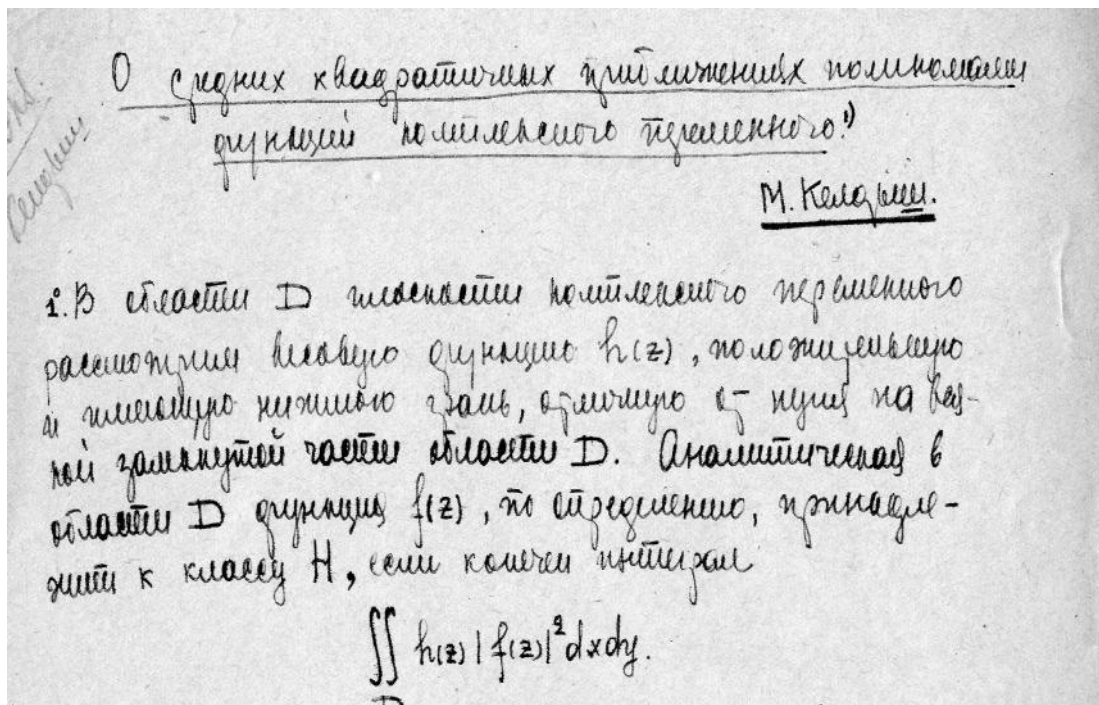 О средних квадратичных приближениях полиномами
функций комплексного переменного.¹)
М. Келдыш.
1°. В области D плоскости комплексного переменного
рассмотрим весовую функцию h(z), положительную
и имеющую нижнюю грань, отличную от нуля на вся-
кой замкнутой части области D. Аналитическая в
области D функция f(z), по определению, принадле-
жит к классу H, если конечен интеграл
∬ h(z) |f(z)|² dxdy.
D